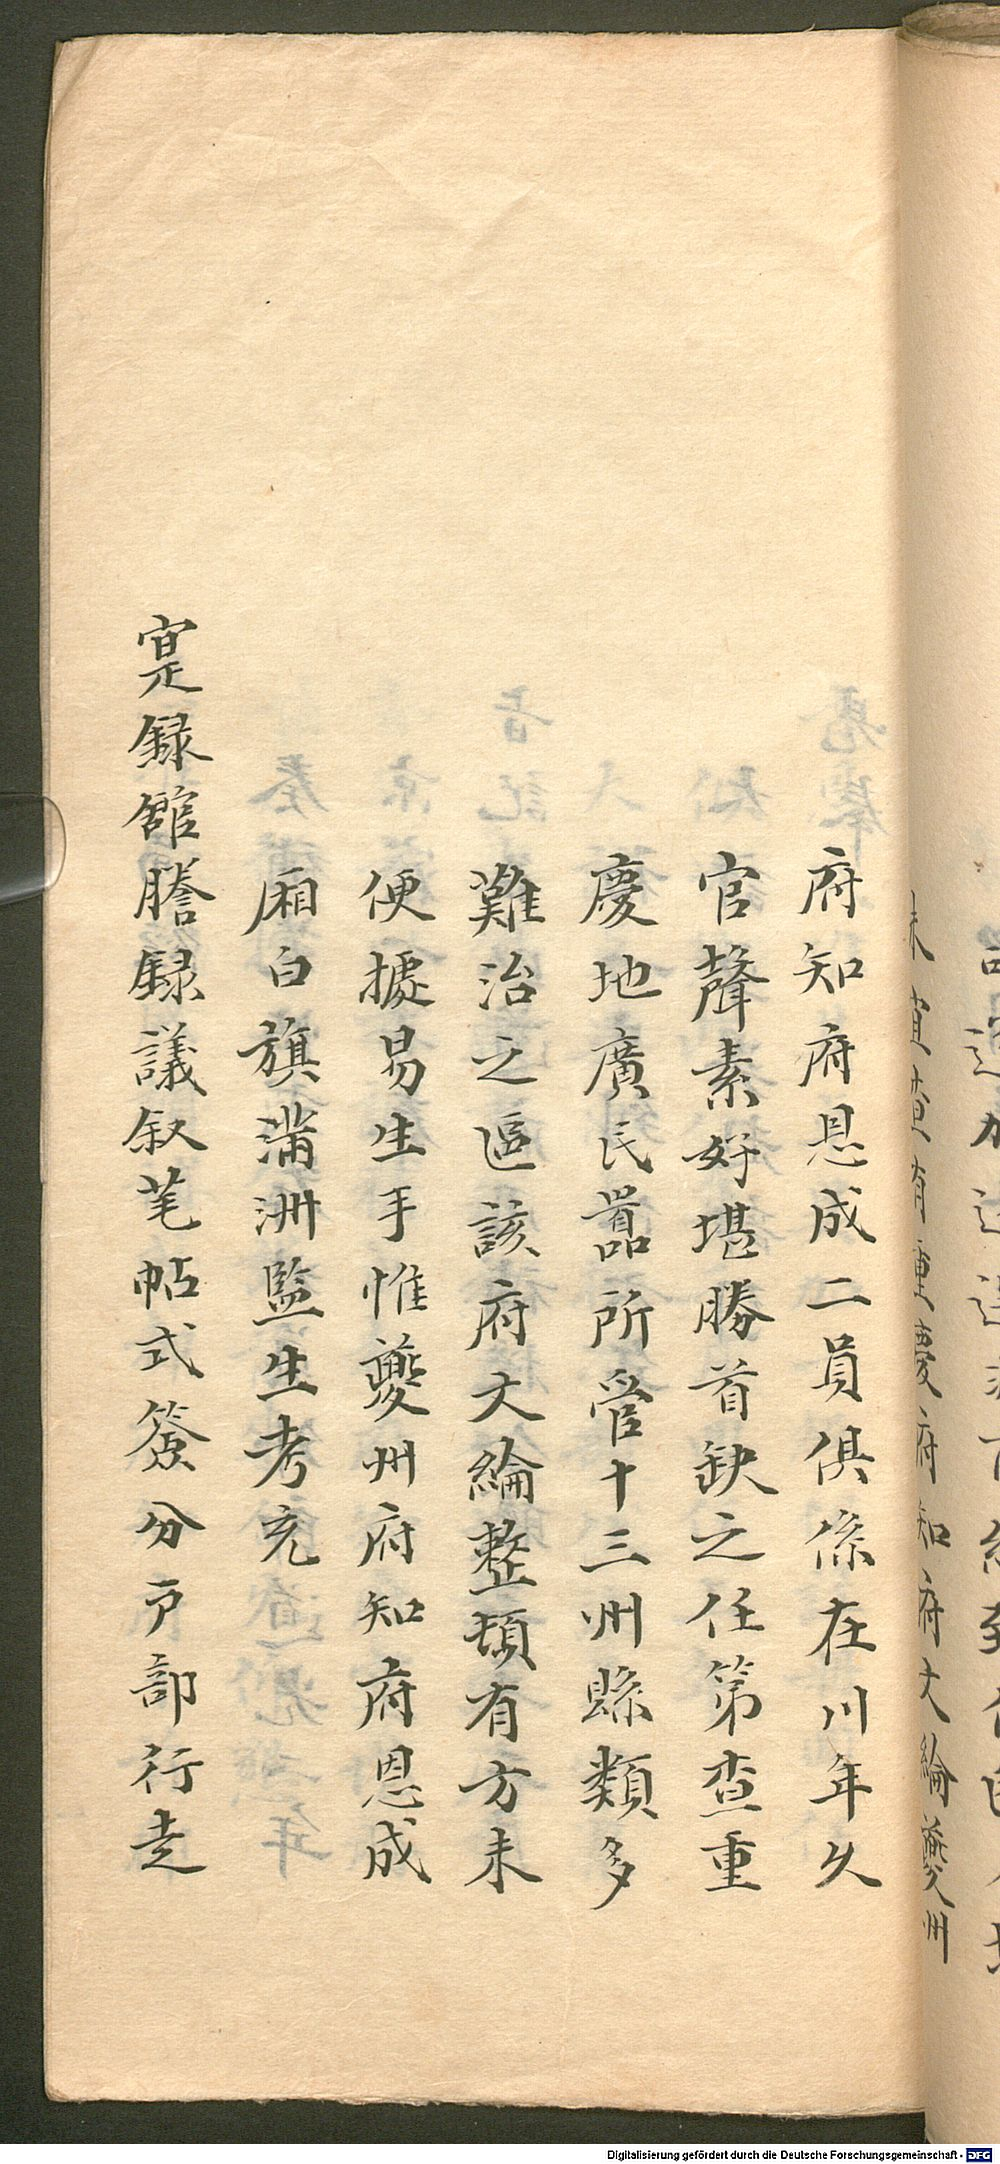 未
查有重慶府知府大綸夔州
府知府恩成二員俱係在川年久
官聲素好堪勝首缺之任第查重
慶地廣民囂所管十三州縣類多
難治之區該府大綸整頓有方未
便據易生手惟夔州府知府恩成
廂白旗滿洲監生考充
寔録館謄録議叙笔帖式簽分户部行走
Digitalisierung gefördert durch die Deutsche Forschungsgemeinschaft - DFG